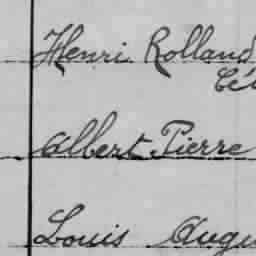 Henri Rolland
Albert Pierre
Louis